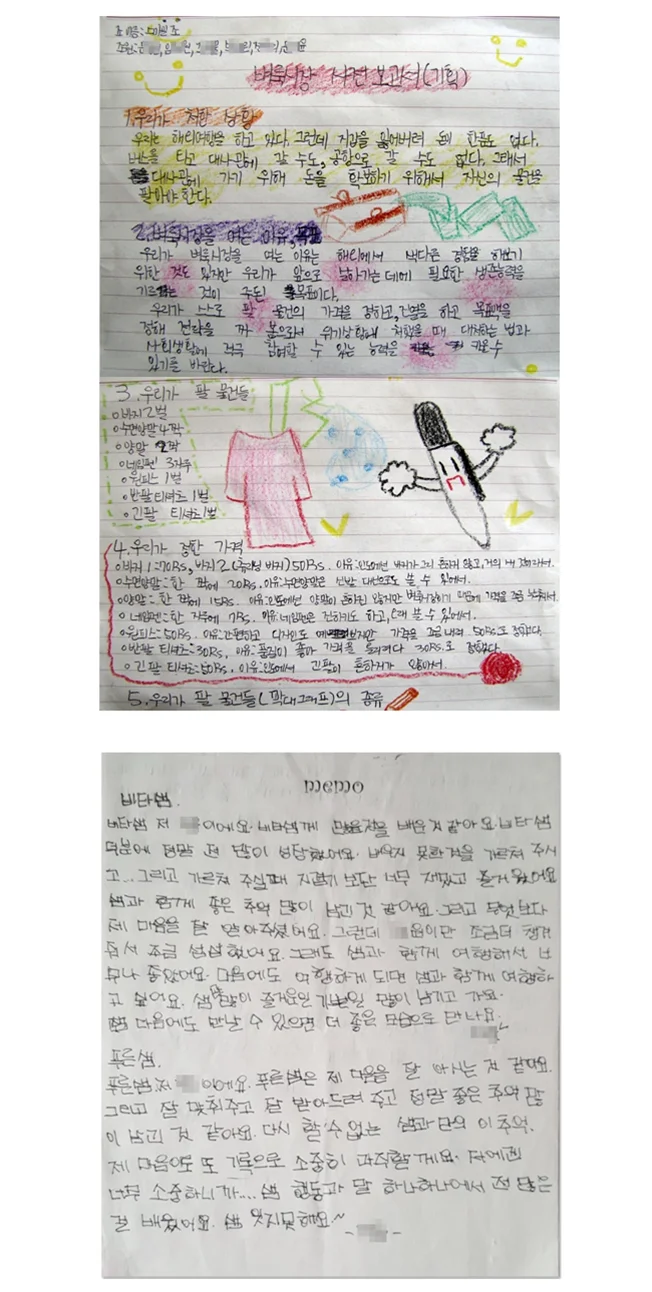 벼룩시장 사전 보고서(기획)
1. 우리가 처한 상황
우리는 해외여행을 하고 있다. 그런데 지갑을 잃어버려 돈이 한푼도 없다.
버스를 타고 대사관에 갈 수도, 공항으로 갈 수도 없다. 그래서
대사관에 가기 위해 돈을 확보하기 위해서 자신의 물건을
팔아야 한다.
2. 벼룩시장을 여는 이유, 목표
우리가 벼룩시장을 여는 이유는 해외에서 색다른 경험을 해보기
위한 것도 있지만 우리가 앞으로 살아가는 데에 필요한 생존능력을
기르는 것이 주된 목표이다.
우리가 스스로 팔 물건의 가격을 정하고, 진열을 하고 목표액을
정해 전략을 짜 봄으로서 위기상황에 처했을 때 대처하는 법과
사회생활에 적극 참여할 수 있는 능력을 키울 수
있기를 바란다.
3. 우리가 팔 물건들
바지 2벌
수면양말 4짝
양말 2짝
네임펜 3자루
원피스 1벌
반팔 티셔츠 1벌
긴팔 티셔츠 1벌
4. 우리가 정한 가격
바지 1:70Rs, 바지 2( 바지) 50Rs. 이유:인도에선 바지가 그리 흔하지 않고,
수면양말:한 짝에 20Rs. 이유:수면양말은 신발 대신으로도 쓸 수 있어서.
양말:한 짝에 15Rs. 이유:인도에선 양말이 흔하진 않지만 벼룩시장이기 때문에 가격을 조금 낮춰서.
네임펜:한 자루에 7Rs. 이유:네임펜은 진하기도 하고, 오래 쓸 수 있어서.
원피스:50Rs. 이유:간편하고 디자인도 예쁘지만 가격을 조금 내려 50Rs로 정했다.
반팔 티셔츠:30Rs, 이유:품질이 좋아 가격을 30Rs.로 정했다.
긴 팔 티셔츠:50Rs. 이유:인도에서 긴팔이 흔하지가 않아서.
5. 우리가 팔 물건들(막대그래프)의 종류
memo
비타쌤.
비타쌤 저 이에요. 비타쌤께 많은걸 배운 것 같아요. 비타쌤
덕분에 정말 전 많이 성장했어요. 배우지 못한것을 가르쳐 주시
고... 그리고 가르쳐 주실때 지루하기 보단 너무 재밌고 즐거웠어요
쌤과 함께 좋은 추억 많이 남긴 것 같아요. 그리고 무엇보다
제 마음을 잘 받아주셨어요. 그런데 이만 조금더 챙겨
줘서 조금 섭섭했어요. 그래도 쌤과 함께 여행해서 너
무나 좋았어요. 다음에도 여행하게 되면 쌤과 함께 여행하
고 싶어요. 쌤 많이 즐거운일 기쁜일 많이 남기고 가요.
쌤 다음에도 만날 수 있으면 더 좋은 모습으로 만나요.
푸른쌤.
푸른쌤 저 이에요. 푸른쌤은 제 마음을 잘 아시는 것 같아요.
그리고 잘 맞춰주고 잘 받아드려 주고 정말 좋은 추억 많
이 남긴 것 같아요. 다시 할 수 없는 쌤과 만의 이 추억.
제 마음에도 또 기록으로 소중히 간직할게요.
너무 소중하니까.... 쌤 행동과 말 하나하나에서 전 많은
걸 배웠어요. 쌤 잊지못해요~